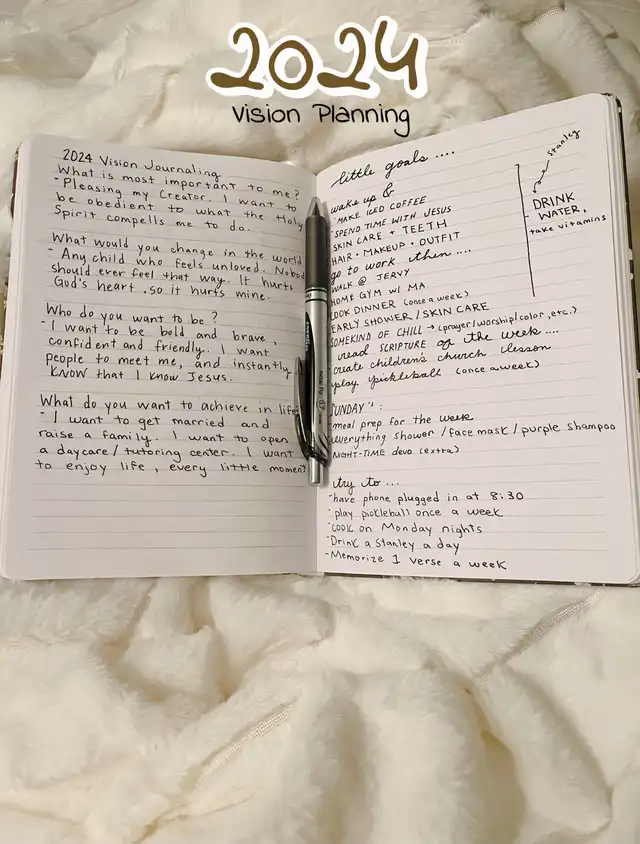 2024
Vision Planning
2024 Vision Journaling
What is most important to me?
- Pleasing my Creator. I want to
be obedient to what the Holy
Spirit compells me to do.
What would you change in the world
- Any child who feels unloved. Nobod
should ever feel that way. It hurts
God's heart, so it hurts mine.
Who do you want to be?
- I want to be bold and brave,
confident and friendly. I want
people to meet me, and instantly
KNOW that I know Jesus.
What do you want to achieve in life
- I want to get married and
raise a family. I want to open
a daycare/tutoring center. I want
to enjoy life, every little moment
little goals ....
wake up &
MAKE ICED COFFEE
SPEND TIME WITH JESUS
SKIN CARE + TEETH
HAIR + MAKEUP + OUTFIT
go to work then ....
WALK @ JERVY
HOME GYM W/ MA
COOK DINNER (once a week)
EARLY SHOWER/SKIN CARE
SOMEKIND OF CHILL → (prayer/worship/color, etc.)
read SCRIPTURE of the week ....
create children's church lesson
play pickleball (once a week)
Stanley
DRINK
WATER,
take vitamins
SUNDAY's:
-meal prep for the week
-everything shower/face mask/purple shampoo
-NIGHT-TIME devo (extra)
try to ...
-have phone plugged in at 8:30
-play pickleball once a week
-cook on Monday nights
-Drink a Stanley a day
-Memorize 1 verse a week